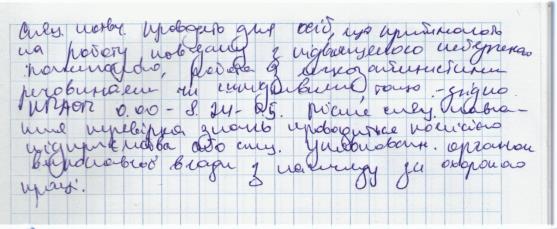 Спец. навч. проводять для осіб, що приймають
на роботу пов'язану з підвищеного небезпекою
робота з легкозаймистими
речовинами чи тощо - згідно
НПАОП 0.00-8.24-05. Після спец. навча-
ння перевірка знань проводиться комісією
підприємства або спец. уповноважен. органом
виконавчої влади з нагляду за охороною
праці.